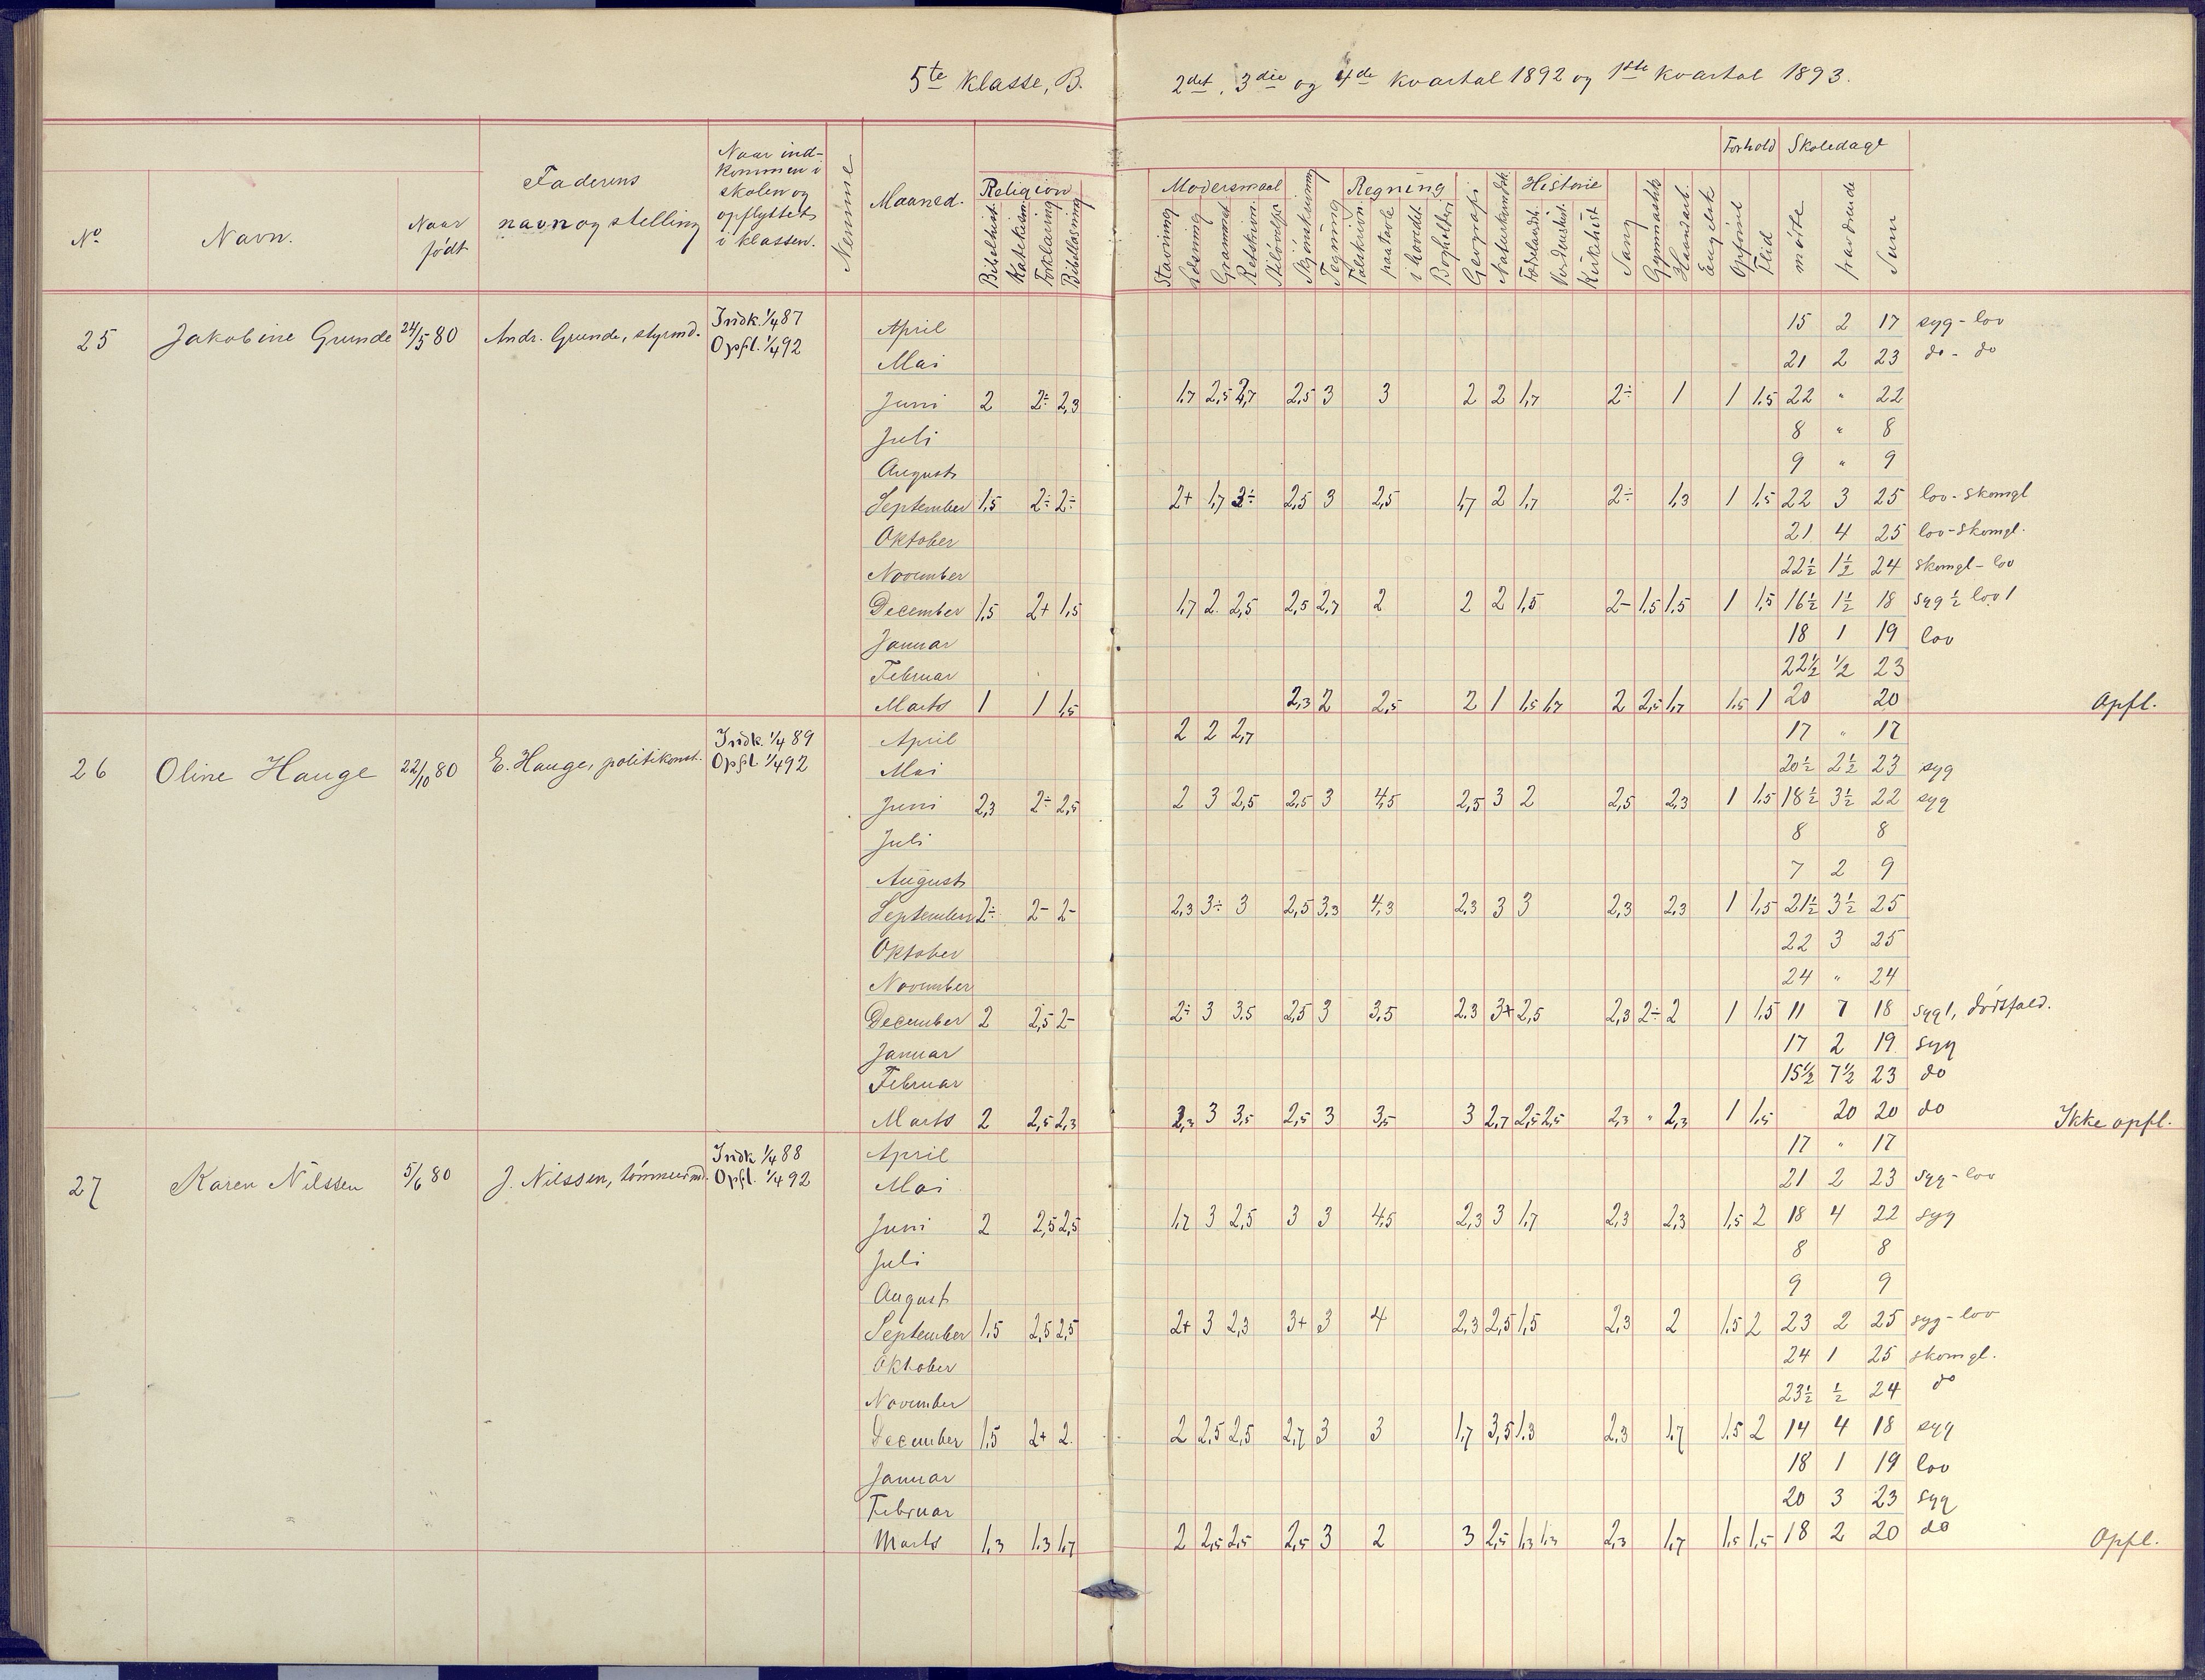 5te klasse, B. 2det, 3die og 4de kvartal 1892 og 1ste kvartal 1893.
No
Navn.
Naar født
Faderens navn og stelling
Naar indkommen i skolen og opflyttet i klassen.
Nemme
Maaned.
Religion
Bibelhist.
Katekism.
Forklaring
Bibellæsning
Modersmaal
Stavning
Læsning
Grammat
Retskrivn.
Stiløvelse
Skjønskrivning
Tegning
Regning
Talskrivn.
paa tavle
i hovedet
Bogholderi
Geografi
Naturkundsk.
Historie
Fædrelandsk.
Verdenshist.
Kirkehist
Sang
Gymnastik
Haandarb.
Engelsk
Forhold
Opførsel
Flid
Skoledage
møtte
fraværende
Sum
25 Jakobine Grunde 24/5 80 Andr. Grunde, styrmd. Indk. 1/4 87 Opfl. 1/4 92
April 15 2 17 syg - lov
Mai 21 2 23 do - do
Juni 2 2÷ 2,3 1,7 2,5 2,7 2,5 3 3 2 2 1,7 2÷ 1 1 1.5 22 " 22
Juli 8 " 8
August 9 " 9
September 1,5 2÷ 2÷ 2+ 1,7 2÷ 2,5 3 2,5 1,7 2 1,7 2÷ 1,3 1 1,5 22 3 25 lov - skomgl
Oktober 21 4 25 lov - skomgl.
November 22½ 1½ 24 skomgl - lov
December 1,5 2+ 1,5 1,7 2 2,5 2,5 2,7 2 2 2 1,5 2- 1,5 1,5 1 1,5 16½ 1½ 18 syg ½ lov 1
Januar 18 1 19 lov
Februar 22½ ½ 23
Marts 1 1 1,5 2,3 2 2,5 2 1 1,5 1,7 2 2,5 1,7 1,5 1 20 20 Opfl.
26 Oline Hauge 22/10 80 E. Hauge, politikonst. Indk. 1/4 89 Opfl. 1/4 92
April 2 2 2,7 17 " 17
Mai 20½ 2½ 23 syg
Juni 2,3 2÷ 2,5 2 3 2,5 2,5 3 4,5 2,5 3 2 2,5 2,3 1 1.5 18½ 3½ 22 syg
Juli 8 8
August 7 2 9
September 2÷ 2- 2- 2,3 3÷ 3 2,5 3,3 4,3 2,3 3 3 2,3 2,3 1 1,5 21½ 3½ 25
Oktober 22 3 25
November 24 " 24
December 2 2,5 2- 2÷ 3 3.5 2,5 3 3,5 2.3 3+ 2,5 2,3 2÷ 2 1 1.5 11 7 18 syg 1, dødsfald.
Januar 17 2 19 syg
Februar 15½ 7½ 23 do
Marts 2 2,5 2,3 2,3 3 3,5 2,5 3 3,5 3 2,7 2,5 2,5 2,3 " 2,3 1 1,5 20 20 do Ikke opfl.
27 Karen Nilssen 5/6 80 J. Nilssen, tømmermd. Indk 1/4 88 Opfl. 1/4 92
April 17 " 17
Mai 21 2 23 syg - lov
Juni 2 2,5 2,5 1,7 3 2,5 3 3 4,5 2,3 3 1,7 2,3 2,3 1,5 2 18 4 22 syg
Juli 8 8
August 9 9
September 1.5 2,5 2,5 2+ 3 2,3 3+ 3 4 2,3 2,5 1,5 2,3 2 1.5 2 23 2 25 syg - lov
Oktober 24 1 25 skomgl.
November 23½ ½ 24 do
December 1,5 2+ 2 2 2,5 2,5 2,7 3 3 1,7 3,5 1.3 2,3 1,7 1.5 2 14 4 18 syg
Januar 18 1 19 lov
Februar 20 3 23 syg
Marts 1,3 1.3 1,7 2 2,5 2,5 2,5 3 2 3 2,5 1,3 1,3 2,3 1,7 1,5 1,5 18 2 20 do Opfl.